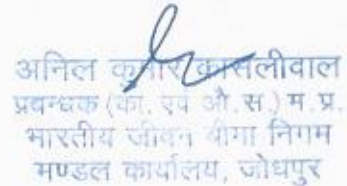 अनिल कुमार कासलीवाल
प्रबन्धक (का. एवं औ.स.) म.प्र.
भारतीय जीवन बीमा निगम
मण्डल कार्यालय, जोधपुर